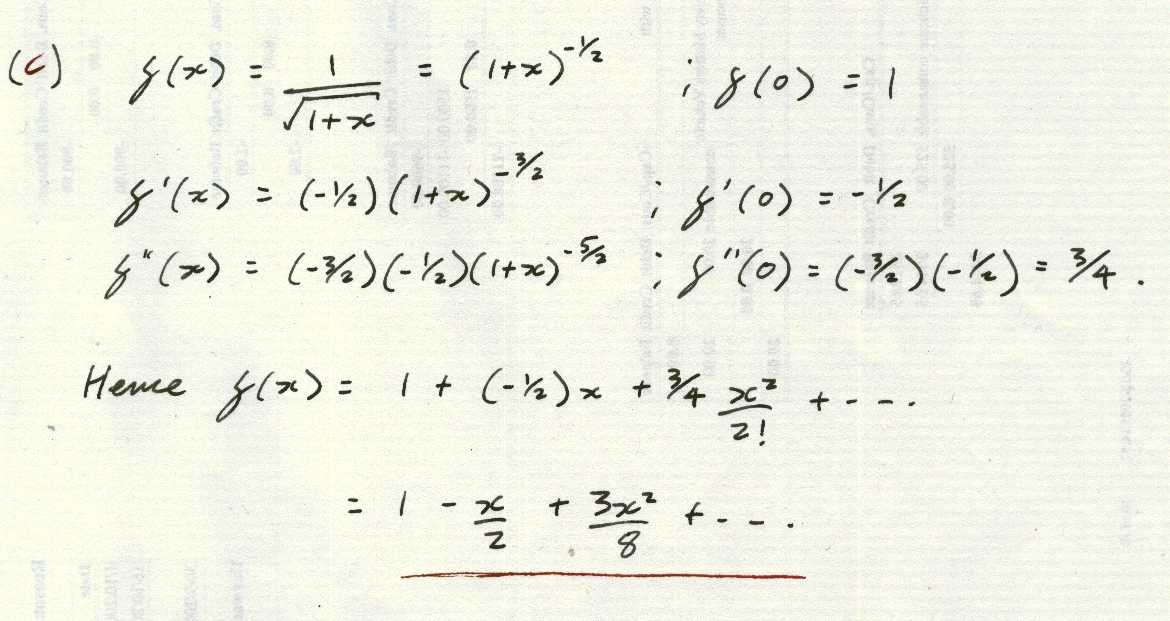 (c) f(x) = 1/√(1+x) = (1+x)^(-1/2) ; f(0) = 1
f'(x) = (-1/2)(1+x)^(-3/2) ; f'(0) = -1/2
f"(x) = (-3/2)(-1/2)(1+x)^(-5/2) ; f"(0) = (-3/2)(-1/2) = 3/4 .
Hence f(x) = 1 + (-1/2)x + 3/4 x²/2! + - - - .
= 1 - x/2 + 3x²/8 + - - - .